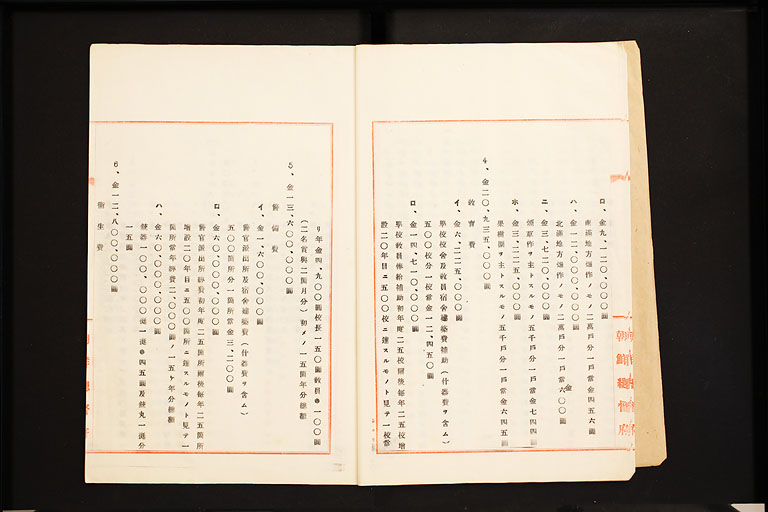 ロ、金九、一二〇、〇〇〇圓
南滿地方畑作ノモノ二萬戸分一戸當金四五六圓
ハ、金一二、〇〇〇、〇〇〇圓
北滿地方畑作ノモノ二萬戸分一戸當金六〇〇圓
ニ、金三、七二〇、〇〇〇圓
煙草作ヲ主トスルモノ五千戸分一戸當金七四四圓
ホ、金三、二二五、〇〇〇圓
果樹園ヲ主トスルモノ五千戸分一戸當金六四五圓
4、金二〇、九三五、〇〇〇圓
教育費
イ、金六、二二五、〇〇〇圓
學校校舍及教員宿舍建築費補助(什器費ヲ含ム)
五〇〇校分一校當金一二、四五〇圓
ロ、金一四、七一〇、〇〇〇圓
學校教員俸給補助初年度二五校爾後毎年二五校増
設二〇年目ニ五〇〇校ニ達スルモノト見テ一校當
朝鮮總督府
リ年金四、九〇〇圓校長一五〇圓教員 一〇〇圓
(二名賞與二箇月分)初メノ一五箇年分補助
5、金一三、六〇〇、〇〇〇圓
警備費
イ、金一、六〇〇、〇〇〇圓
警官派出所及宿舍建築費(什器費ヲ含ム)
五〇〇箇所分一箇所當金三、二〇〇圓
ロ、金六、〇〇〇、〇〇〇圓
警官派出所經費初年度二五箇所爾後毎年二五箇所
増設二〇年目ニ五〇〇箇所ニ達スルモノト見テ一
箇所當年經費二、〇〇〇圓ノ一五ケ年分補助
ハ、金六〇〇、〇〇〇圓
銃器一〇、〇〇〇挺一挺 四五圓及銃丸一挺分
一五圓
6、金一二、八〇〇、〇〇〇圓
衞生費